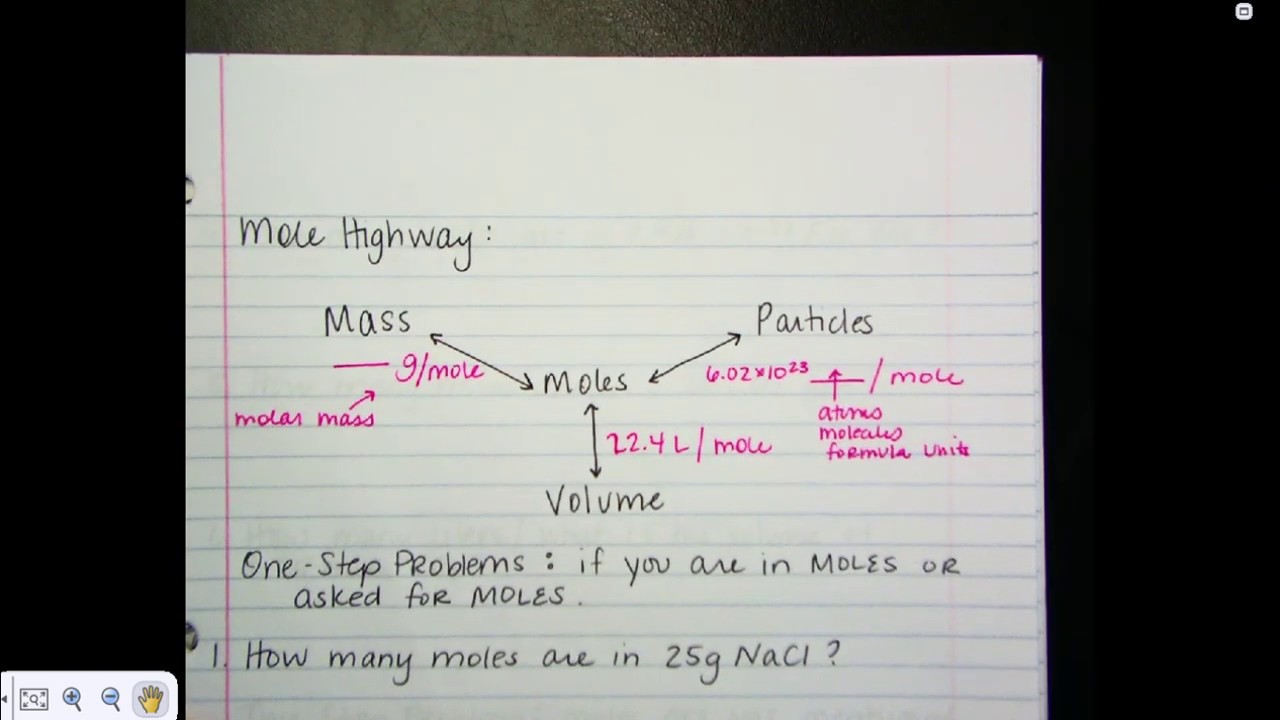 Mole Highway:
Mass
Particles
___ g/mole
Moles
6.02x10²³ ___ / mole
molar mass
atoms
molecules
formula units
22.4 L / mole
Volume
One-Step Problems: if you are in MOLES OR
asked for MOLES.
1. How many moles are in 25g NaCl?